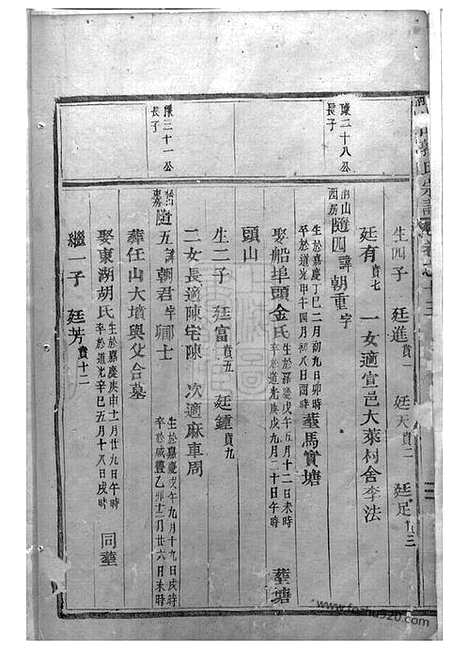 生四子 廷進賁一 廷天賁二 廷足
廷有賁七 一女適宣邑大萊村舍李法
陳二十八公長子
南山西房隨四諱朝重字
生於嘉慶丁巳二月初九日卯時
卒於道光甲午四月初八日酉時 葬馬實塘
娶船埠頭金氏
生於嘉慶戊午五月十二日未時
卒於道光庚戌九月二十日午時 葬塘
頭山
生二子 廷富賁五 廷鐘賁九
二女長適陳宅陳 次適麻車周
陳三十一公長子
隨五諱朝君字聊士
生於嘉慶戊午九月十九日戌時
卒於咸豐乙卯十二月廿六日未時
葬任山大墳與父合墓
娶東湖胡氏
生於嘉慶庚申十一月廿九日午時
卒於道光辛巳五月十八日戌時 同葬
繼一子 廷芳賁十二
www.foshu920.com